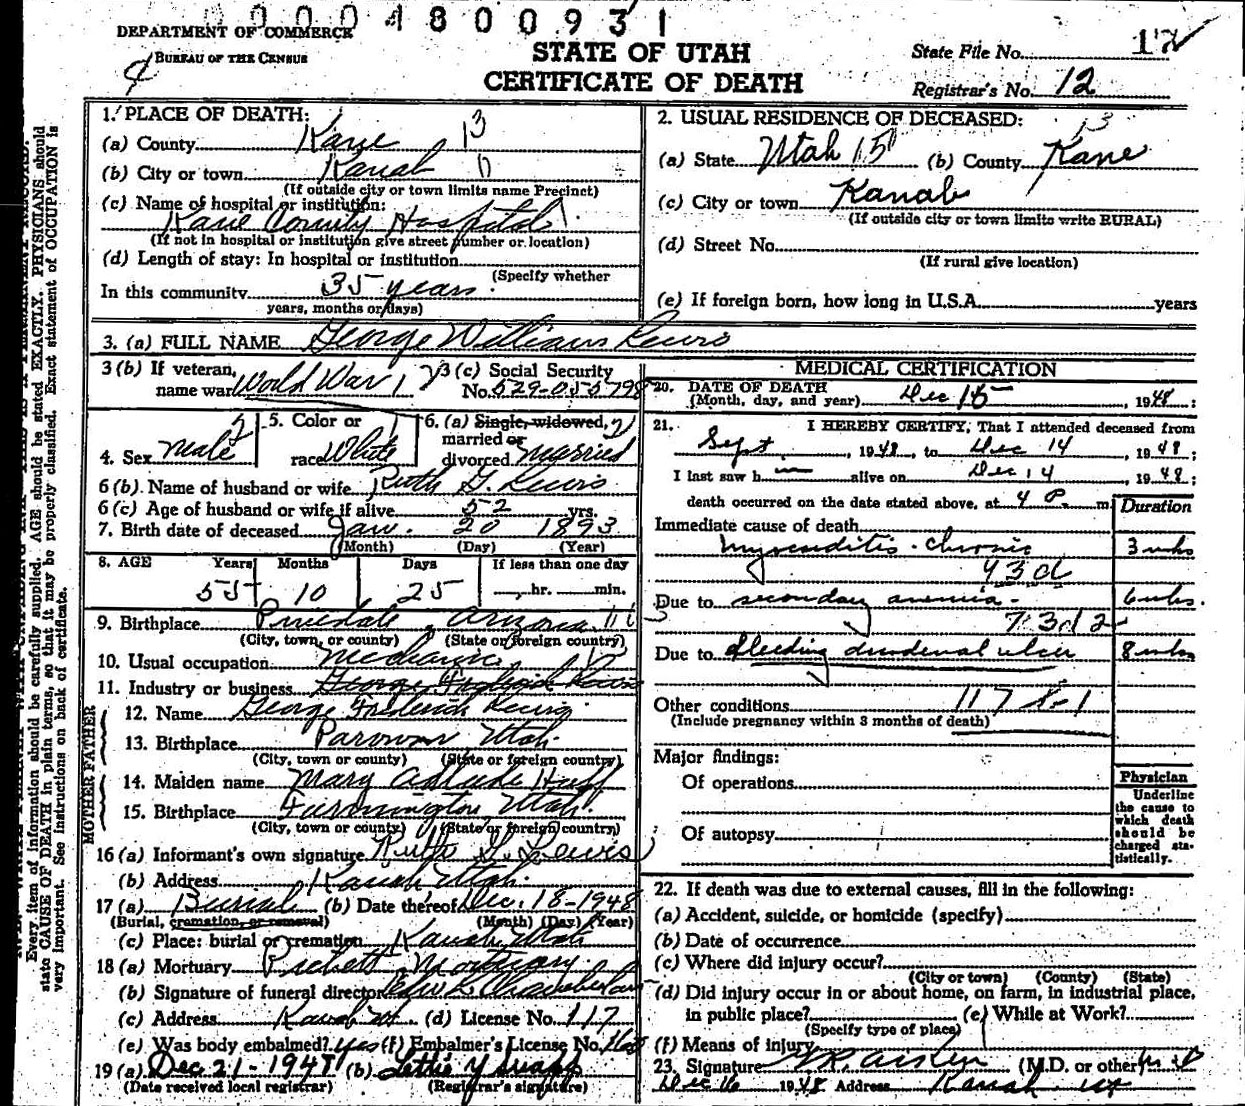 00004800931
DEPARTMENT OF COMMERCE
BUREAU OF THE CENSUS
STATE OF UTAH
CERTIFICATE OF DEATH
State File No. 12
Registrar's No. 12
Every item of information should be carefully supplied. AGE should be stated EXACTLY. PHYSICIANS should
state CAUSE OF DEATH in plain terms, so that it may be properly classified. Exact statement of OCCUPATION is
very important. See instructions on back of certificate.
1. PLACE OF DEATH:
(a) County Kane 13
(b) City or town Kanab 0
(If outside city or town limits name Precinct)
(c) Name of hospital or institution:
Kane County Hospital
(If not in hospital or institution give street number or location)
(d) Length of stay: In hospital or institution
(Specify whether
In this community 35 years
years, months or days)
2. USUAL RESIDENCE OF DECEASED:
13
(a) State Utah 15 (b) County Kane
(c) City or town Kanab
(If outside city or town limits write RURAL)
(d) Street No.
(If rural give location)
(e) If foreign born, how long in U.S.A. years
3. (a) FULL NAME George William Lewis
3 (b) If veteran,
name war World War 1 2
3 (c) Social Security
No. 529-05-5798
4. Sex Male 5. Color or
race White
6. (a) Single, widowed, 2
married or
divorced Married
6 (b) Name of husband or wife Ruth G. Lewis
6 (c) Age of husband or wife if alive 52 yrs.
7. Birth date of deceased Jan. 20 1893
(Month) (Day) (Year)
8. AGE Years Months Days If less than one day
55 10 25 hr. min.
9. Birthplace Pinedale, Arizona
(City, town, or county) (State or foreign country)
10. Usual occupation Mechanic
11. Industry or business George Frederick Lewis
FATHER
12. Name George Frederick Lewis
13. Birthplace Parowan Utah
(City, town or county) (State or foreign country)
MOTHER
14. Maiden name Mary Huff
15. Birthplace Farmington, Utah.
(City, town or county) (State or foreign country)
16 (a) Informant's own signature Ruth G. Lewis
(b) Address Kanab Utah.
17 (a) Burial (b) Date thereof Dec. 18-1948
(Burial, cremation, or removal) (Month) (Day) (Year)
(c) Place: burial or cremation Kanab, Utah
18 (a) Mortuary Mortuary
(b) Signature of funeral director Chamberlain
(c) Address Kanab Ut. (d) License No. 117
(e) Was body embalmed? yes (f) Embalmer's License No.
19 (a) Dec 21-1948 (b) Lettie Y
(Date received local registrar) (Registrar's signature)
MEDICAL CERTIFICATION
20. DATE OF DEATH
(Month, day, and year) Dec 15, 1948;
21. I HEREBY CERTIFY, That I attended deceased from
Sept, 1948, to Dec 14, 1948;
I last saw h im alive on Dec 14, 1948;
death occurred on the date stated above, at 4 P. m
Duration
Immediate cause of death
myocarditis - chronic 3 wks
93d
Due to secondary anemia - 6 wks.
Due to bleeding duodenal ulcer 8 wks
Other conditions
(Include pregnancy within 3 months of death)
Major findings:
Of operations
Of autopsy
Physician
Underline
the cause to
which death
should be
charged sta-
tistically.
22. If death was due to external causes, fill in the following:
(a) Accident, suicide, or homicide (specify)
(b) Date of occurrence
(c) Where did injury occur?
(City or town) (County) (State)
(d) Did injury occur in or about home, on farm, in industrial place,
in public place? (e) While at Work?
(Specify type of place)
(f) Means of injury
23. Signature (M.D. or other) M D
Dec 16 1948 Address Kanab Ut